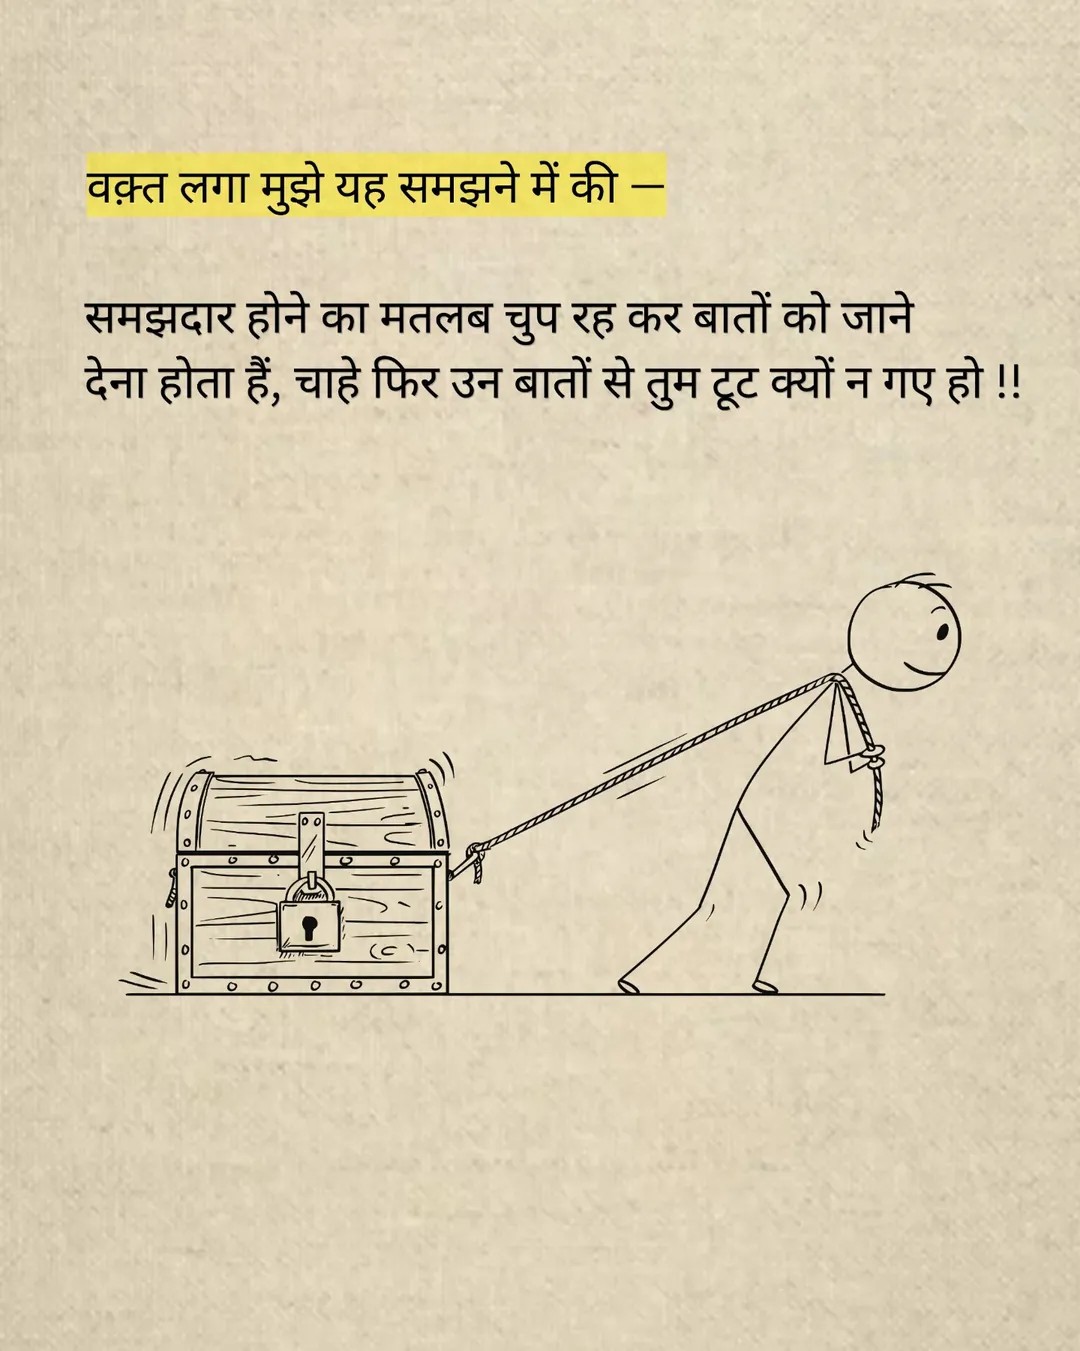 वक़्त लगा मुझे यह समझने में की —
समझदार होने का मतलब चुप रह कर बातों को जाने
देना होता हैं, चाहे फिर उन बातों से तुम टूट क्यों न गए हो !!